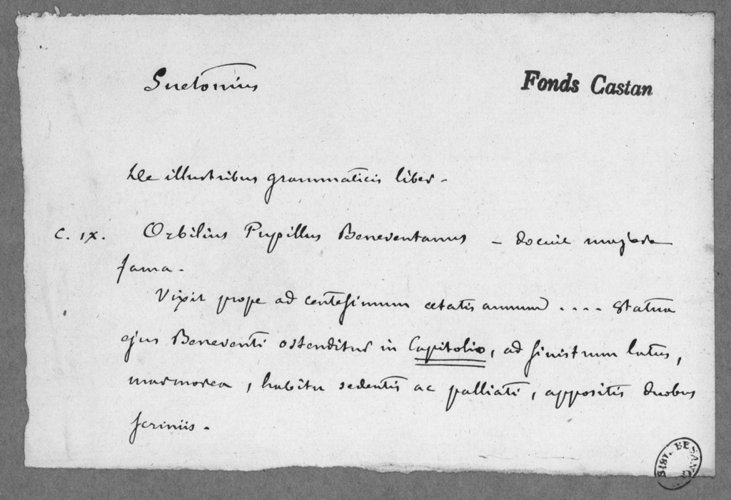 Suetonius
Fonds Castan
De illustribus grammaticis liber.
C. IX. Orbilius Pupillus Beneventanus — docuit majore
fama.
Vixit prope ad centesimum ætatis annum .... Statua
ejus Beneventi ostenditur in Capitolio, ad sinistrum latus,
marmorea, habitu sedentis ac palliati, appositis duobus
scriniis.
BIBL. BESANÇ